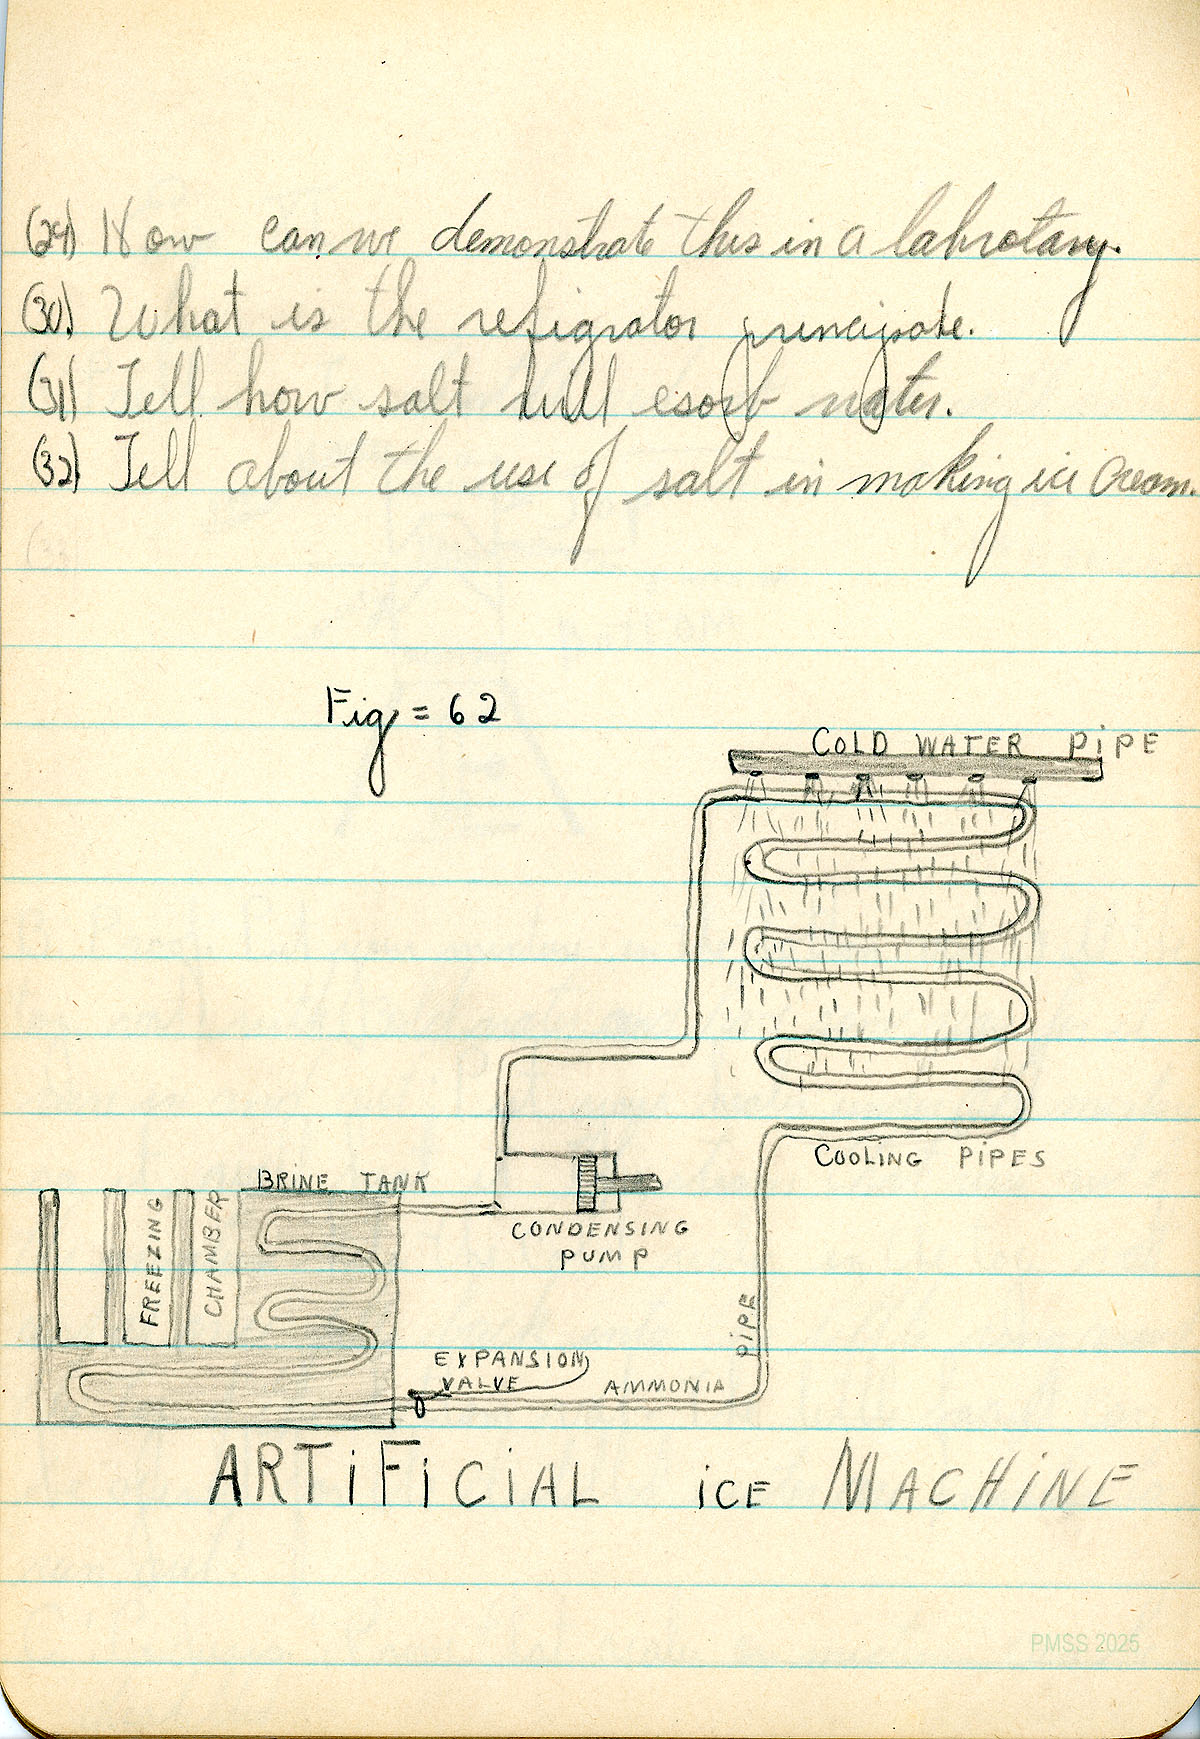 (29) How can we demonstrate this in a labrotary.
(30) What is the refigrator principale.
(31) Tell how salt will esorb water.
(32) Tell about the use of salt in making ice cream.
(33)
Fig = 62
COLD WATER PiPE
COOLING PIPES
BRINE TANK
FREEZING
CHAMBER
CONDENSING
PUMP
PIPE
EXPANSION
VALVE
AMMONIA
ARTiFiCiAL iCE MACHiNE
PMSS 2025